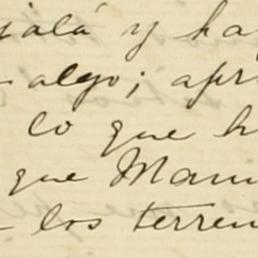 ojalá y hay
algo; apr
lo que h
que Manu
los terren